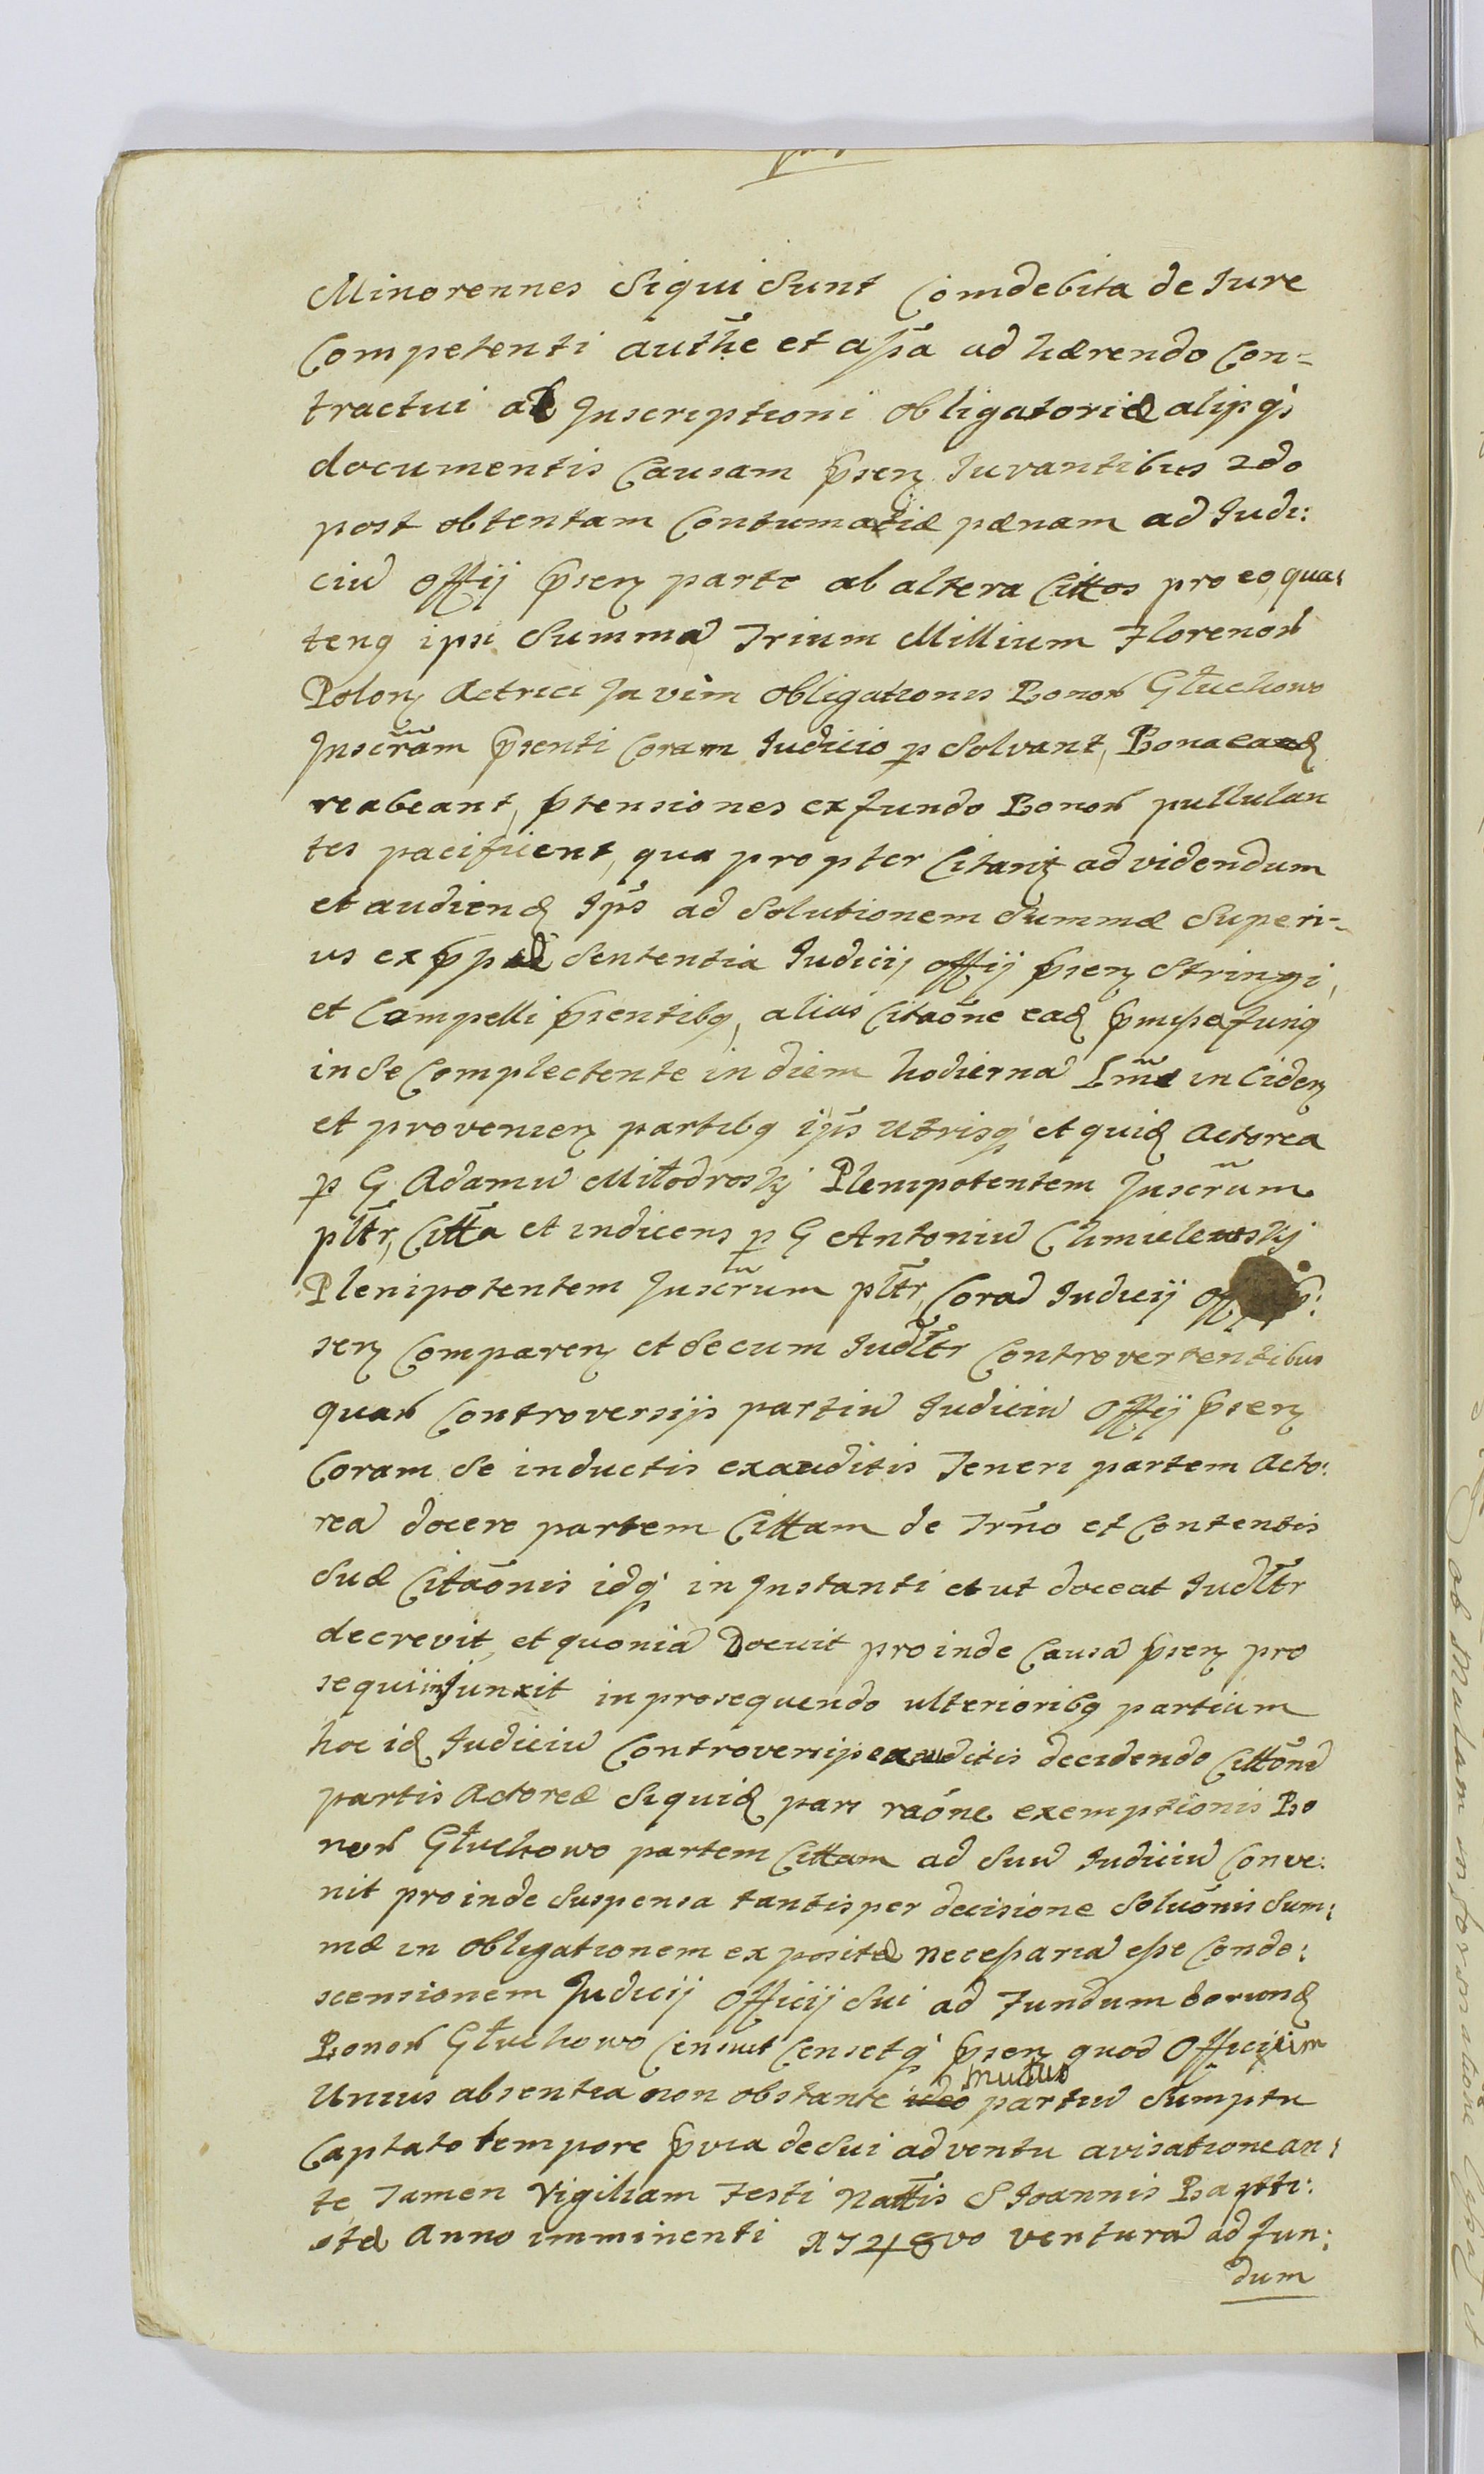 Minorennes Siqui Sunt Comdebita de Jure
Competenti authe et assa ad hærendo Con-
tractui ac Inscriptioni obligatoriæ alijsq
documentis Causam pseñ Juvantibus 2do
post obtentam Contumatiæ pænam ad Judi:
ciũ Offij pseñ parte ab altera Cittos pro eo, qua:
tenq ipsi Summã Trium Millium Florenoꝝ
Poloñ Actrici In vim obligationis Bonoꝝ Głuchowo
Inscrãm psenti Coram Judicio p solvant, Bona eaqȝ
reabeant, ptensiones ex fundo Bonoꝝ pullulan
tes pacificent, qua propter Citant ad videndum
et audiendȝ Ips ad Solutionem Summæ Superi-
us ex Sententia Judicij offij pseñ Stringi,
et Compelli psentibq, alias Citaõne eadȝ pmissa
in Se Complectente in diem hodiernã Lmẽ in Cideñ
et provenieñ partibq ips Utrisq et quidȝ Actorea
p G Adamũ Miłodroskj Plenipotentem Inscrũm
pltr, Citta et indicens p G Antoniũ Chmielewskj
Plenipotentem Inscrũm pltr, Corã Judicij
señ Compareñ et Secum Judltr Controvertentibus
quaꝝ Controversijs partiũ Judiciũ Offij pseñ
Coram Se inductis exauditis Teneri partem Acto:
reã docere partem Cittam de Trno et Contentis
Suæ Citaõnis idq in Instanti et ut doceat Judltr
decrevit, et quoniã Docuit proinde Causã pseñ pro
sequi injunxit in prosequendo ulterioribq partium
hoc idȝ Judiciũ Controversijs exauditis decidendo Cittõnẽ
partis Actoreæ Siquidȝ pars raõne exemptionis Bo
noꝝ Głuchowo partem Cittam ad Suũ Judiciũ Conve:
nit proinde Suspensa tantisper decisione Soluõnis Sum:
mæ in obligationem expositæ necessariã esse Conde:
scensionem Judicij Officij Sui ad Fundum eorundȝ
Bonoꝝ Głuchowo Censuit Censetq pseñ quod Officium
Unius absentia non obstante ideo mutuo partiũ Sumptu
Captato tempore pvia de Sui adventu avisatione an:
te Tamen Vigiliam Festi Nattis S Joannis Baptti:
stæ Anno imminenti 1748vo venturã ad fun:
dum